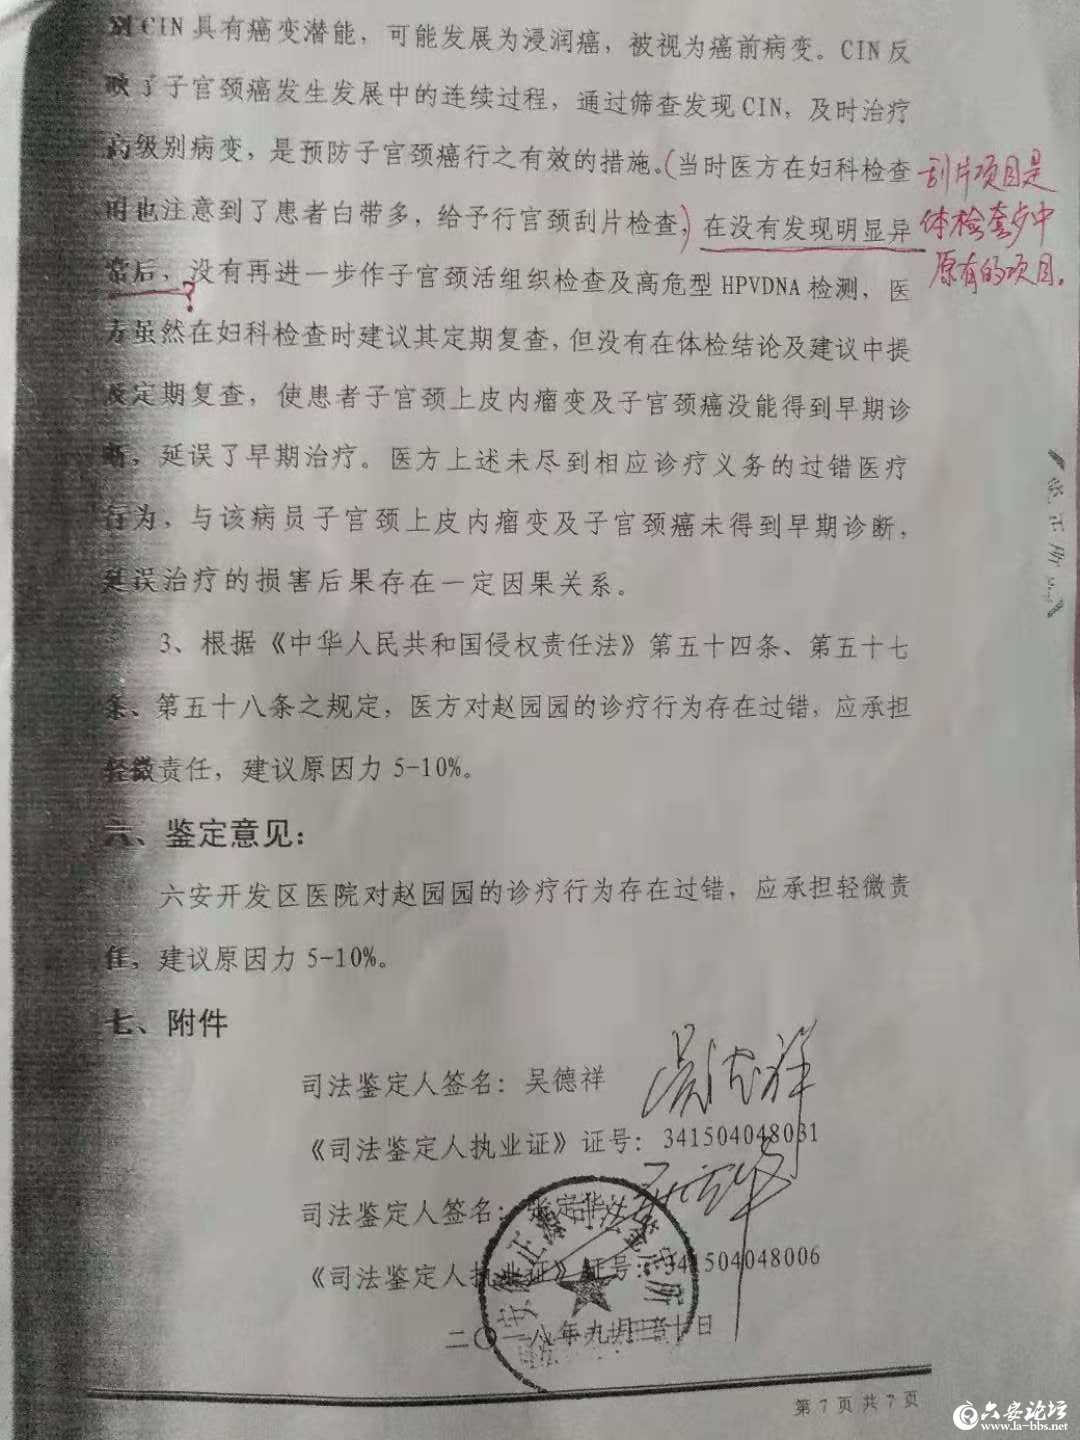 别CIN具有癌变潜能，可能发展为浸润癌，被视为癌前病变。CIN反
映了子宫颈癌发生发展中的连续过程，通过筛查发现CIN，及时治疗
高级别病变，是预防子宫颈癌行之有效的措施。(当时医方在妇科检查
时也注意到了患者白带多，给予行宫颈刮片检查，)在没有发现明显异
常后，没有再进一步作子宫颈活组织检查及高危型HPVDNA检测，医
?
方虽然在妇科检查时建议其定期复查，但没有在体检结论及建议中提
及定期复查，使患者子宫颈上皮内瘤变及子宫颈癌没能得到早期诊
断，延误了早期治疗。医方上述未尽到相应诊疗义务的过错医疗
行为，与该病员子宫颈上皮内瘤变及子宫颈癌未得到早期诊断，
延误治疗的损害后果存在一定因果关系。
刮片项目是
体检套步中
原有的项目。
3、根据《中华人民共和国侵权责任法》第五十四条、第五十七
条、第五十八条之规定，医方对赵园园的诊疗行为存在过错，应承担
轻微责任，建议原因力5-10%。
六、鉴定意见：
六安开发区医院对赵园园的诊疗行为存在过错，应承担轻微责
任，建议原因力5-10%。
七、附件
司法鉴定人签名：吴德祥
吴德祥
《司法鉴定人执业证》证号：341504048031
司法鉴定人签名：定华
《司法鉴定人执业证》证号：341504048006
正源司法鉴定所
二〇一八年九月二十日
第7页共7页
六安论坛
www.la-bbs.net